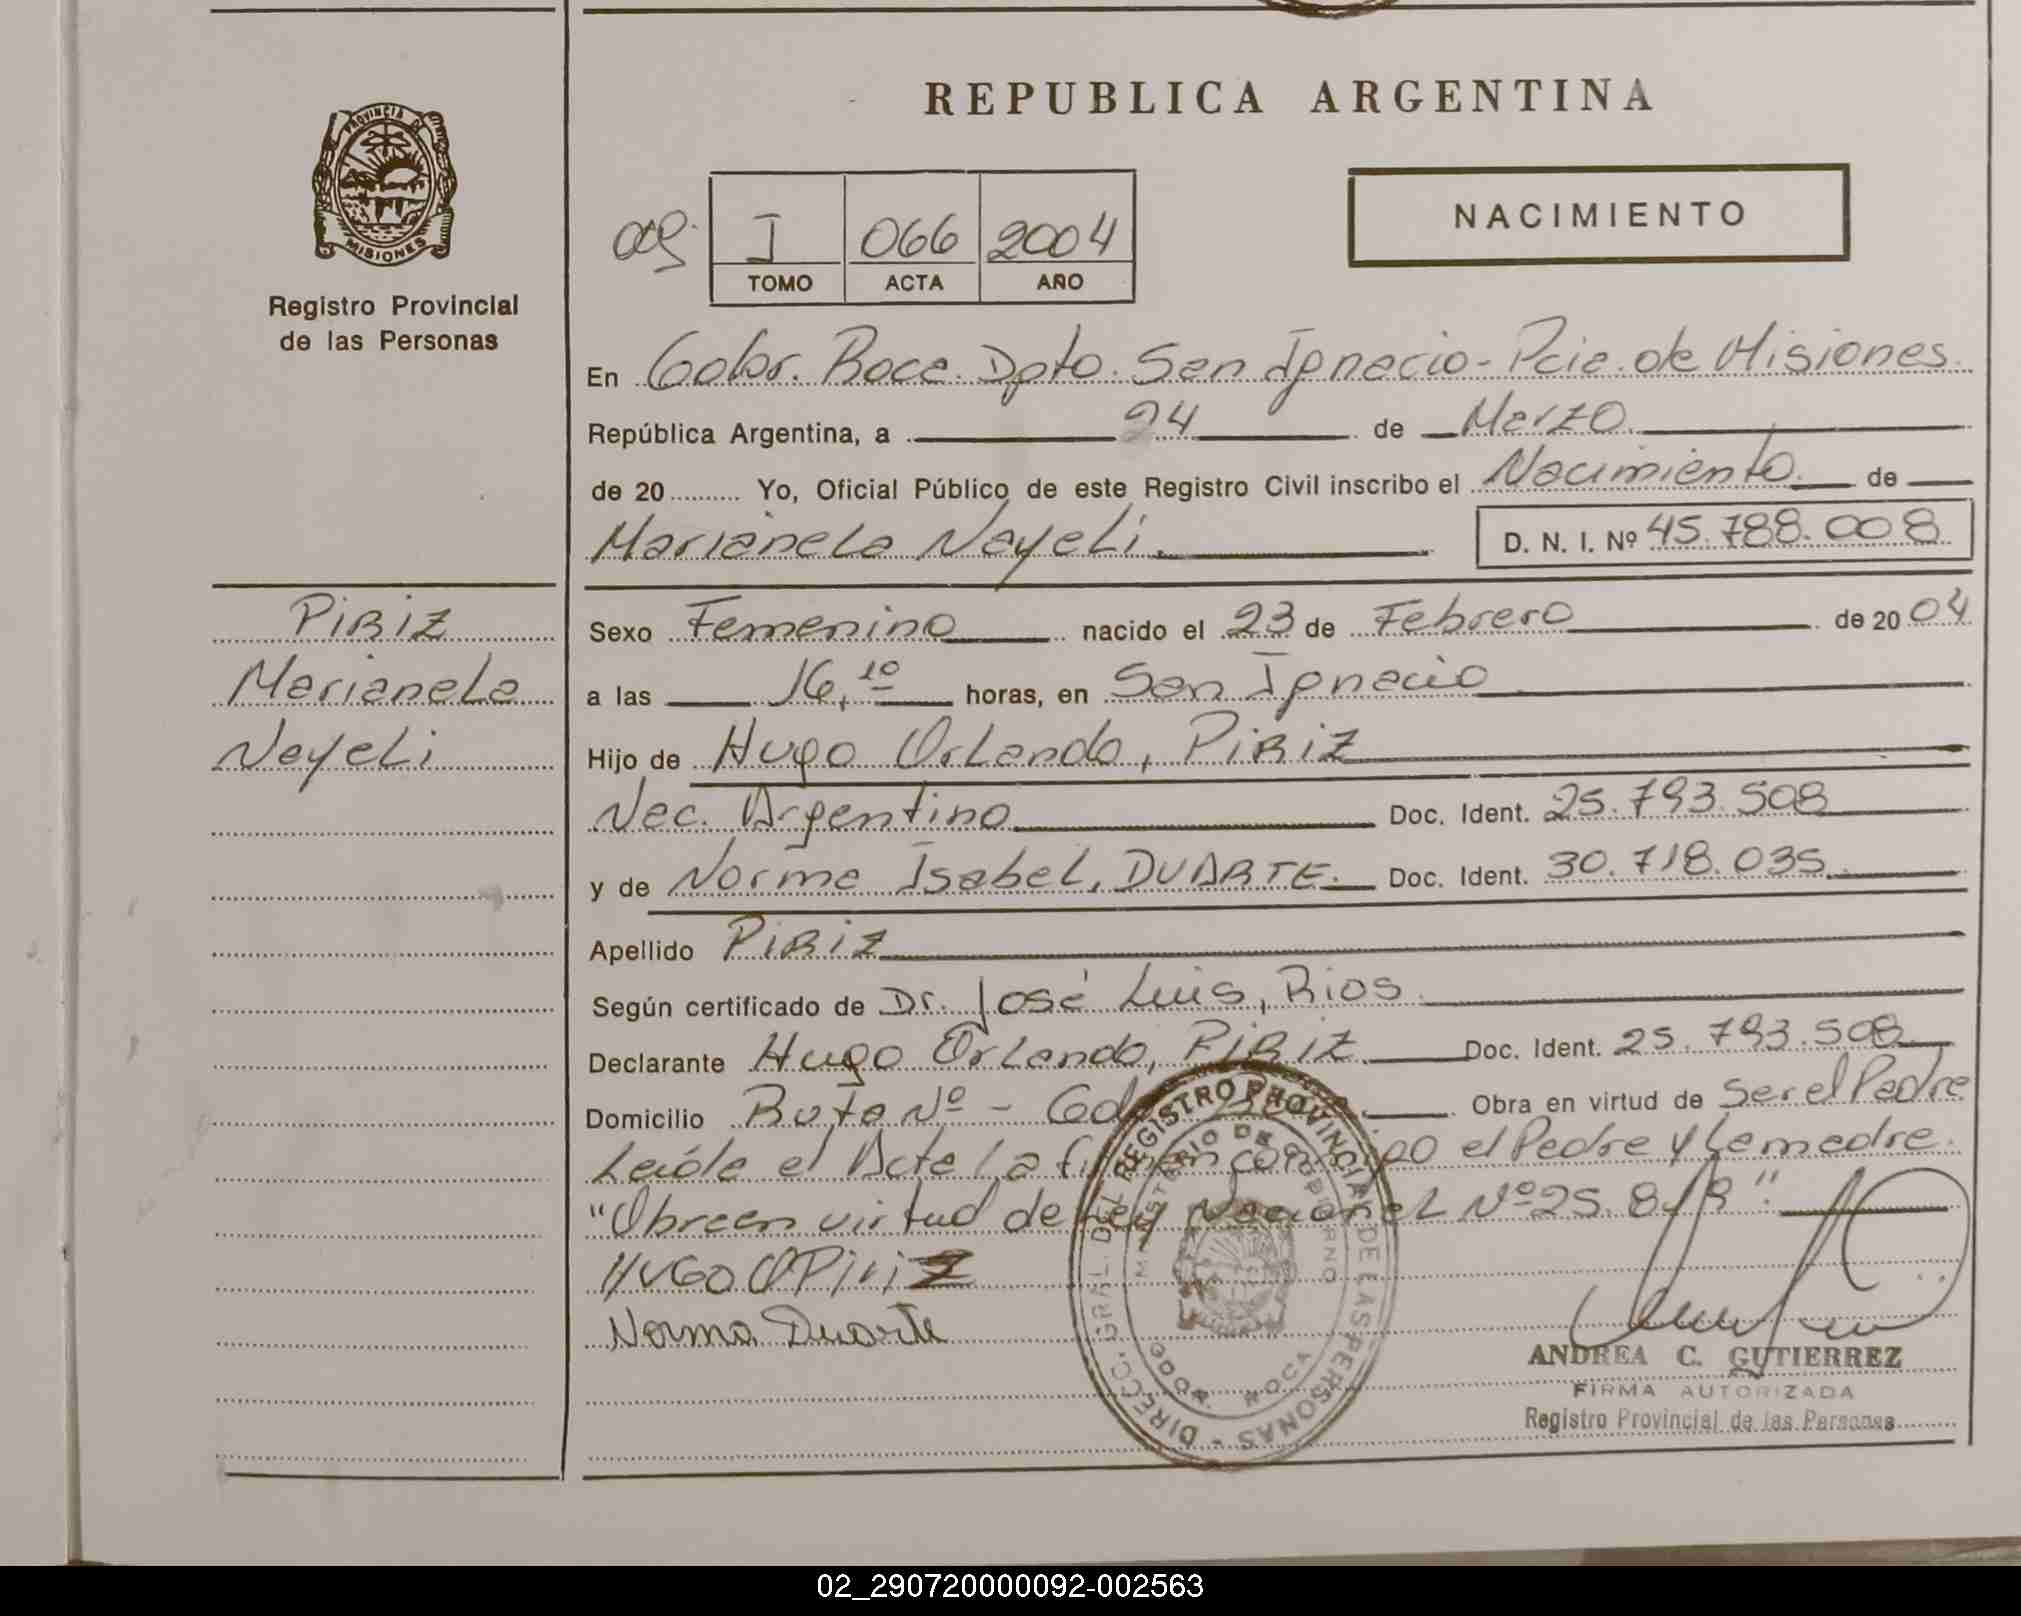 REPUBLICA ARGENTINA
PROVINCIA DE
MISIONES
Registro Provincial
de las Personas
NACIMIENTO
I 066 2004
TOMO ACTA AÑO
En Gobor. Roca. Dpto. San Ignacio - Pcia. de Misiones.
República Argentina, a 24 de Marzo
de 20 Yo, Oficial Público de este Registro Civil inscribo el Nacimiento. de
Marianela Nayeli. D. N. I. Nº 45.788.008
PIRIZ
Marianela
Nayeli
Sexo Femenino nacido el 23 de Febrero de 20 04
a las 16,10 horas, en San Ignacio
Hijo de Hugo Orlando, PIRIZ
Nac. Argentino Doc. Ident. 25.793.508
y de Norma Isabel, DUARTE. Doc. Ident. 30.718.035.
Apellido PIRIZ
Según certificado de Dr. José Luis, Rios
Declarante Hugo Orlando, PIRIZ. Doc. Ident. 25.793.508.
Domicilio Ruta Nº - Obra en virtud de Ser el Padre
Leída el Acta La firman el Padre y La madre.
"Obra en virtud de Ley Nacional Nº 25.819".
HUGO O PiriZ
Norma Duarte
DIRECC. GRAL. DEL REGISTRO PROVINCIAL DE LAS PERSONAS -
MINISTERIO DE GOBIERNO
GDOR. ROCA
ANDREA C. GUTIERREZ
FIRMA AUTORIZADA
Registro Provincial de las Personas
02_290720000092-002563